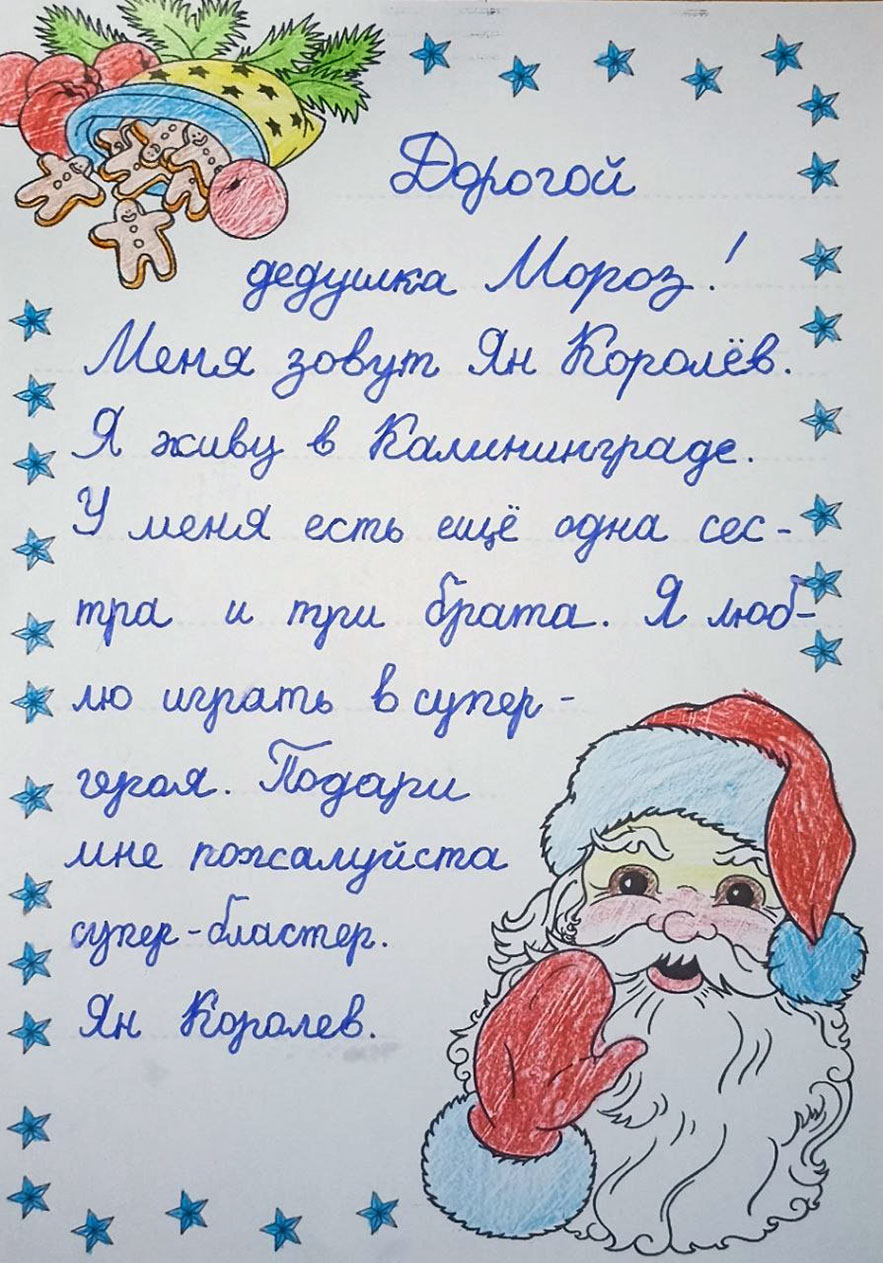 Дорогой
дедушка Мороз!
Меня зовут Ян Королёв.
Я живу в Калининграде.
У меня есть ещё одна сес-
тра и три брата. Я люб-
лю играть в супер-
героя. Подари
мне пожалуйста
супер-бластер.
Ян Королев.